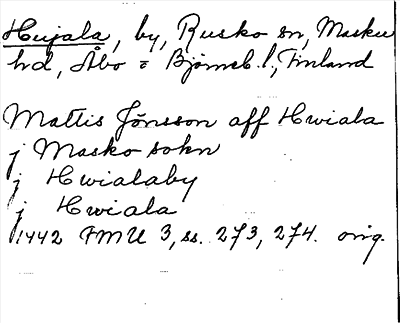 Hujala, by, Rusko sn, Masku
hd, Åbo o Björneb. l., Finland
Mattis Jönsson aff Hwiala
j Masko sokn
j Hwialaby
j Hwiala
1442 FMU 3, ss. 273, 274. orig.